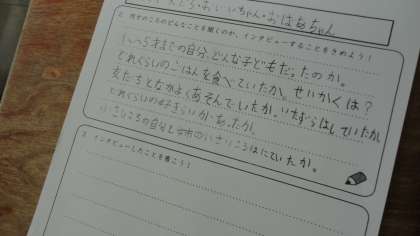 おじいちゃん・おばあちゃん
2. 自分のころのどんなことを聞くのか、インタビューすることをきめよう!
1〜5才までの自分、どんな子どもだったのか。
どれくらいのごはんを食べていたか。せいかくは?
友だちとなかよくあそんでいたか。いたずらはしていたか
どれくらいの好ききらいがあったか。
小さいころの自分と今の小さいころはにていたか。
3. インタビューしたことを書こう!